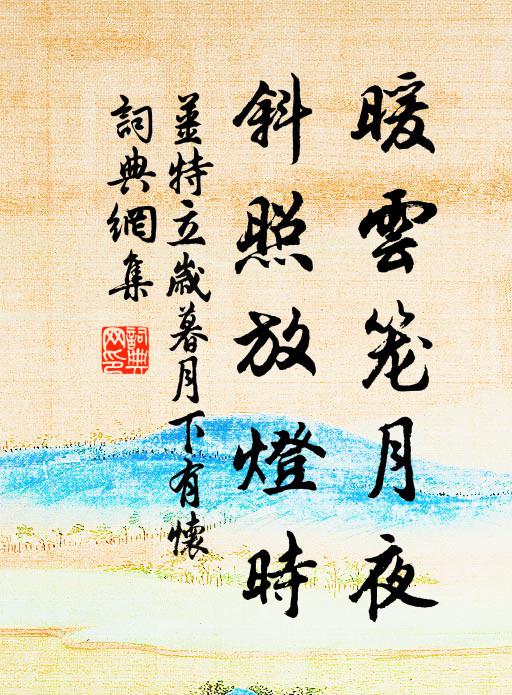 暖雲笼月夜
斜照放燈時
姜特立歲暮月下有懷
詞典網集
詞典網印